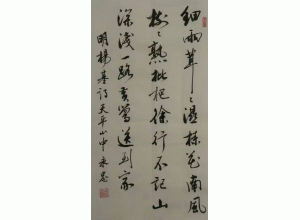 細雨茸〻濕楝花南風
樹〻熟枇杷徐行不記山
深淺一路黄鶯送到家
明楊基詩天平山中